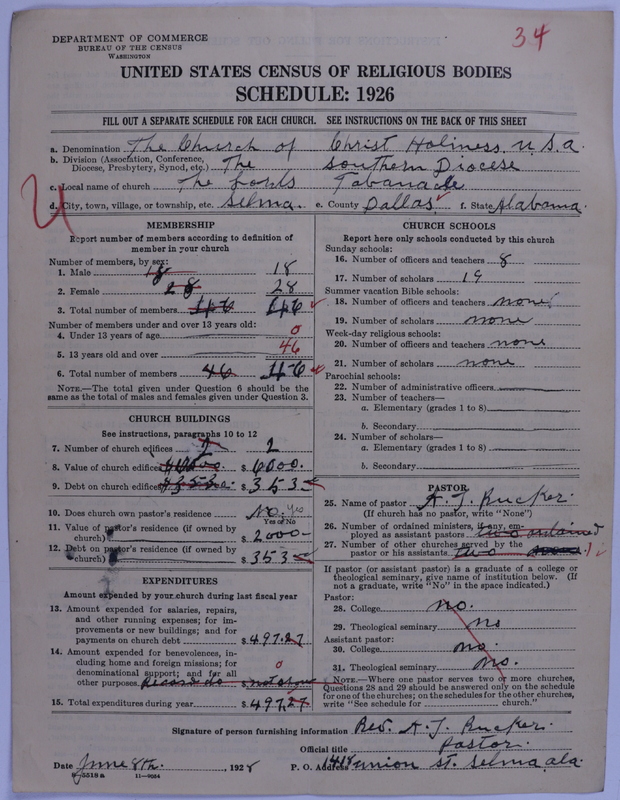 34
DEPARTMENT OF COMMERCE
BUREAU OF THE CENSUS
WASHINGTON
UNITED STATES CENSUS OF RELIGIOUS BODIES
SCHEDULE: 1926
FILL OUT A SEPARATE SCHEDULE FOR EACH CHURCH. SEE INSTRUCTIONS ON THE BACK OF THIS SHEET
a. Denomination The Church of Christ Holiness U.S.A.
b. Division (Association, Conference, Diocese, Presbytery, Synod, etc.) The Southern Diocese
c. Local name of church The Lords Tabanacle
d. City, town, village, or township, etc. Selma. e. County Dallas f. State Alabama.
MEMBERSHIP
Report number of members according to definition of
member in your church
Number of members, by sex:
1. Male 18 18
2. Female 28 28
3. Total number of members 46 46
Number of members under and over 13 years old:
4. Under 13 years of age 0
5. 13 years old and over 46
6. Total number of members 46 46
NOTE.—The total given under Question 6 should be the
same as the total of males and females given under Question 3.
CHURCH BUILDINGS
See instructions, paragraphs 10 to 12
7. Number of church edifices 2 2
8. Value of church edifices $ 6000.
9. Debt on church edifices $ 353
10. Does church own pastor's residence No. Yes
Yes or No
11. Value of pastor's residence (if owned by
church) $ 2000
12. Debt on pastor's residence (if owned by
church) $ 353
EXPENDITURES
Amount expended by your church during last fiscal year
13. Amount expended for salaries, repairs,
and other running expenses; for im-
provements or new buildings; and for
payments on church debt $ 497.27
14. Amount expended for benevolences, in-
cluding home and foreign missions; for
denominational support; and for all 0
other purposes.
15. Total expenditures during year $ 497.27
CHURCH SCHOOLS
Report here only schools conducted by this church
Sunday schools:
16. Number of officers and teachers 8
17. Number of scholars 19
Summer vacation Bible schools:
18. Number of officers and teachers none
19. Number of scholars none
Week-day religious schools:
20. Number of officers and teachers none
21. Number of scholars none
Parochial schools:
22. Number of administrative officers
23. Number of teachers—
a. Elementary (grades 1 to 8)
b. Secondary
24. Number of scholars—
a. Elementary (grades 1 to 8)
b. Secondary
PASTOR
25. Name of pastor A. J. Rucker.
(If church has no pastor, write "None")
26. Number of ordained ministers, if any, em-
ployed as assistant pastors two ordained
27. Number of other churches served by the
pastor or his assistants two 1
If pastor (or assistant pastor) is a graduate of a college or
theological seminary, give name of institution below. (If
not a graduate, write "No" in the space indicated.)
Pastor:
28. College no.
29. Theological seminary no
Assistant pastor:
30. College no.
31. Theological seminary no.
NOTE.—Where one pastor serves two or more churches,
Questions 28 and 29 should be answered only on the schedule
for one of the churches; on the schedules for the other churches,
write "See schedule for church."
Signature of person furnishing information Rev. A. J. Rucker.
Official title Pastor.
Date June 8th. , 1928 P. O. Address 1418 union st. Selma, ala.
8-5518 a 11-9064